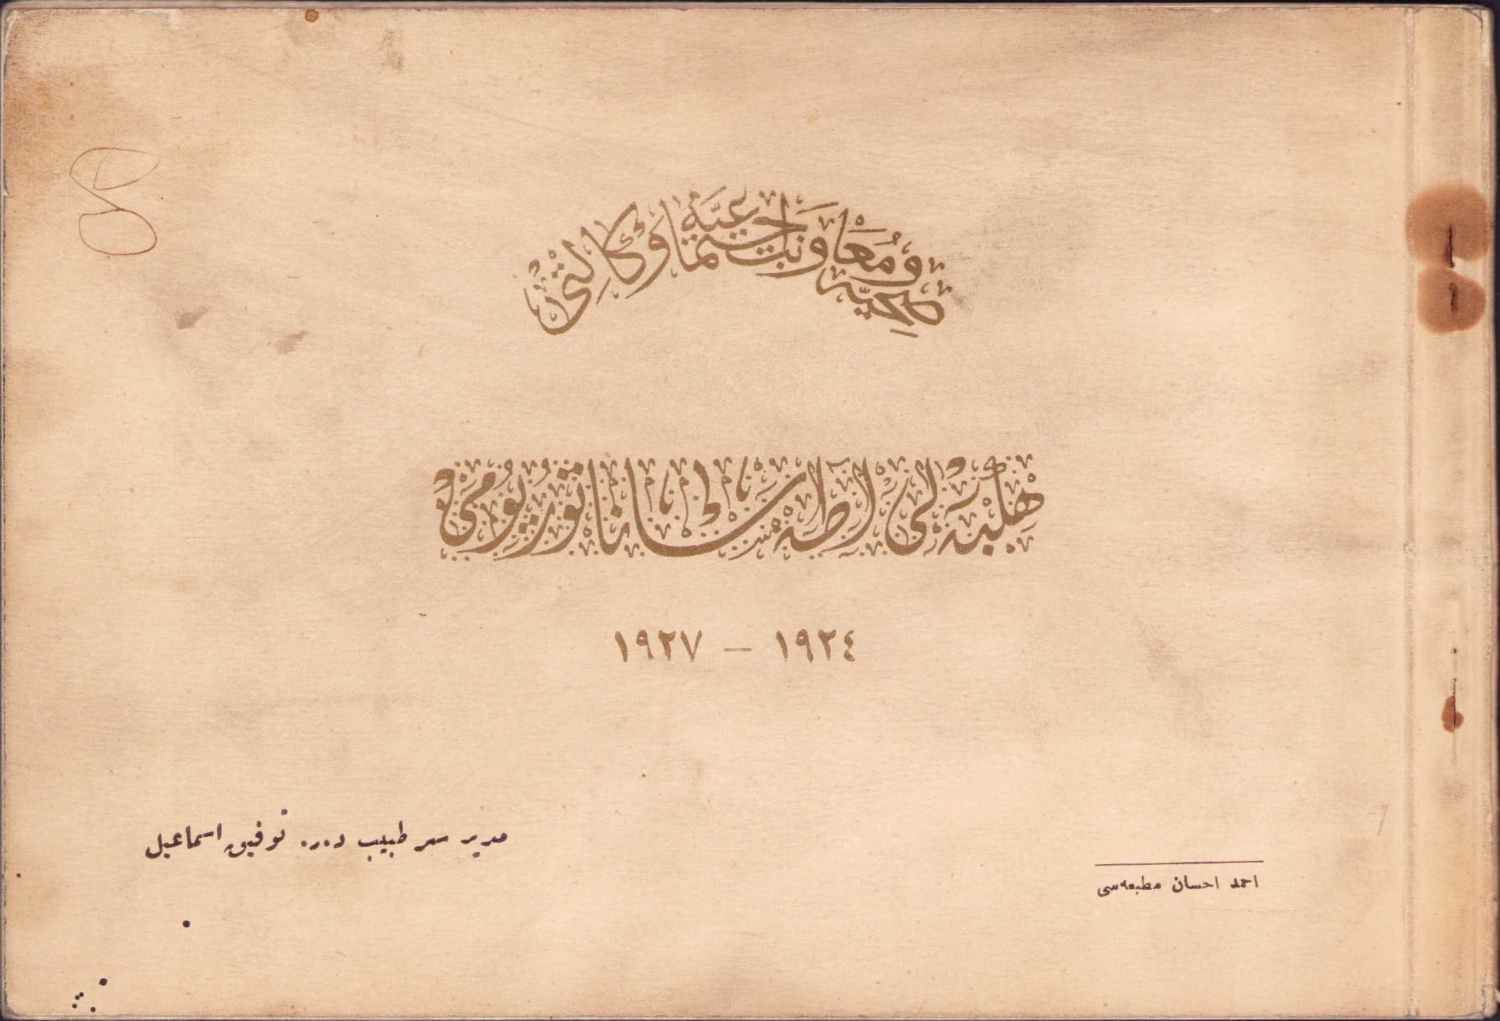 صحیه و معاونت اجتماعیه وکالتی
هیبه‌لی آطه سناطوریومی
١٩٢٤ – ١٩٢٧
مدیر سر طبیب د.ر. توفیق اسماعیل
احمد احسان مطبعه‌سی